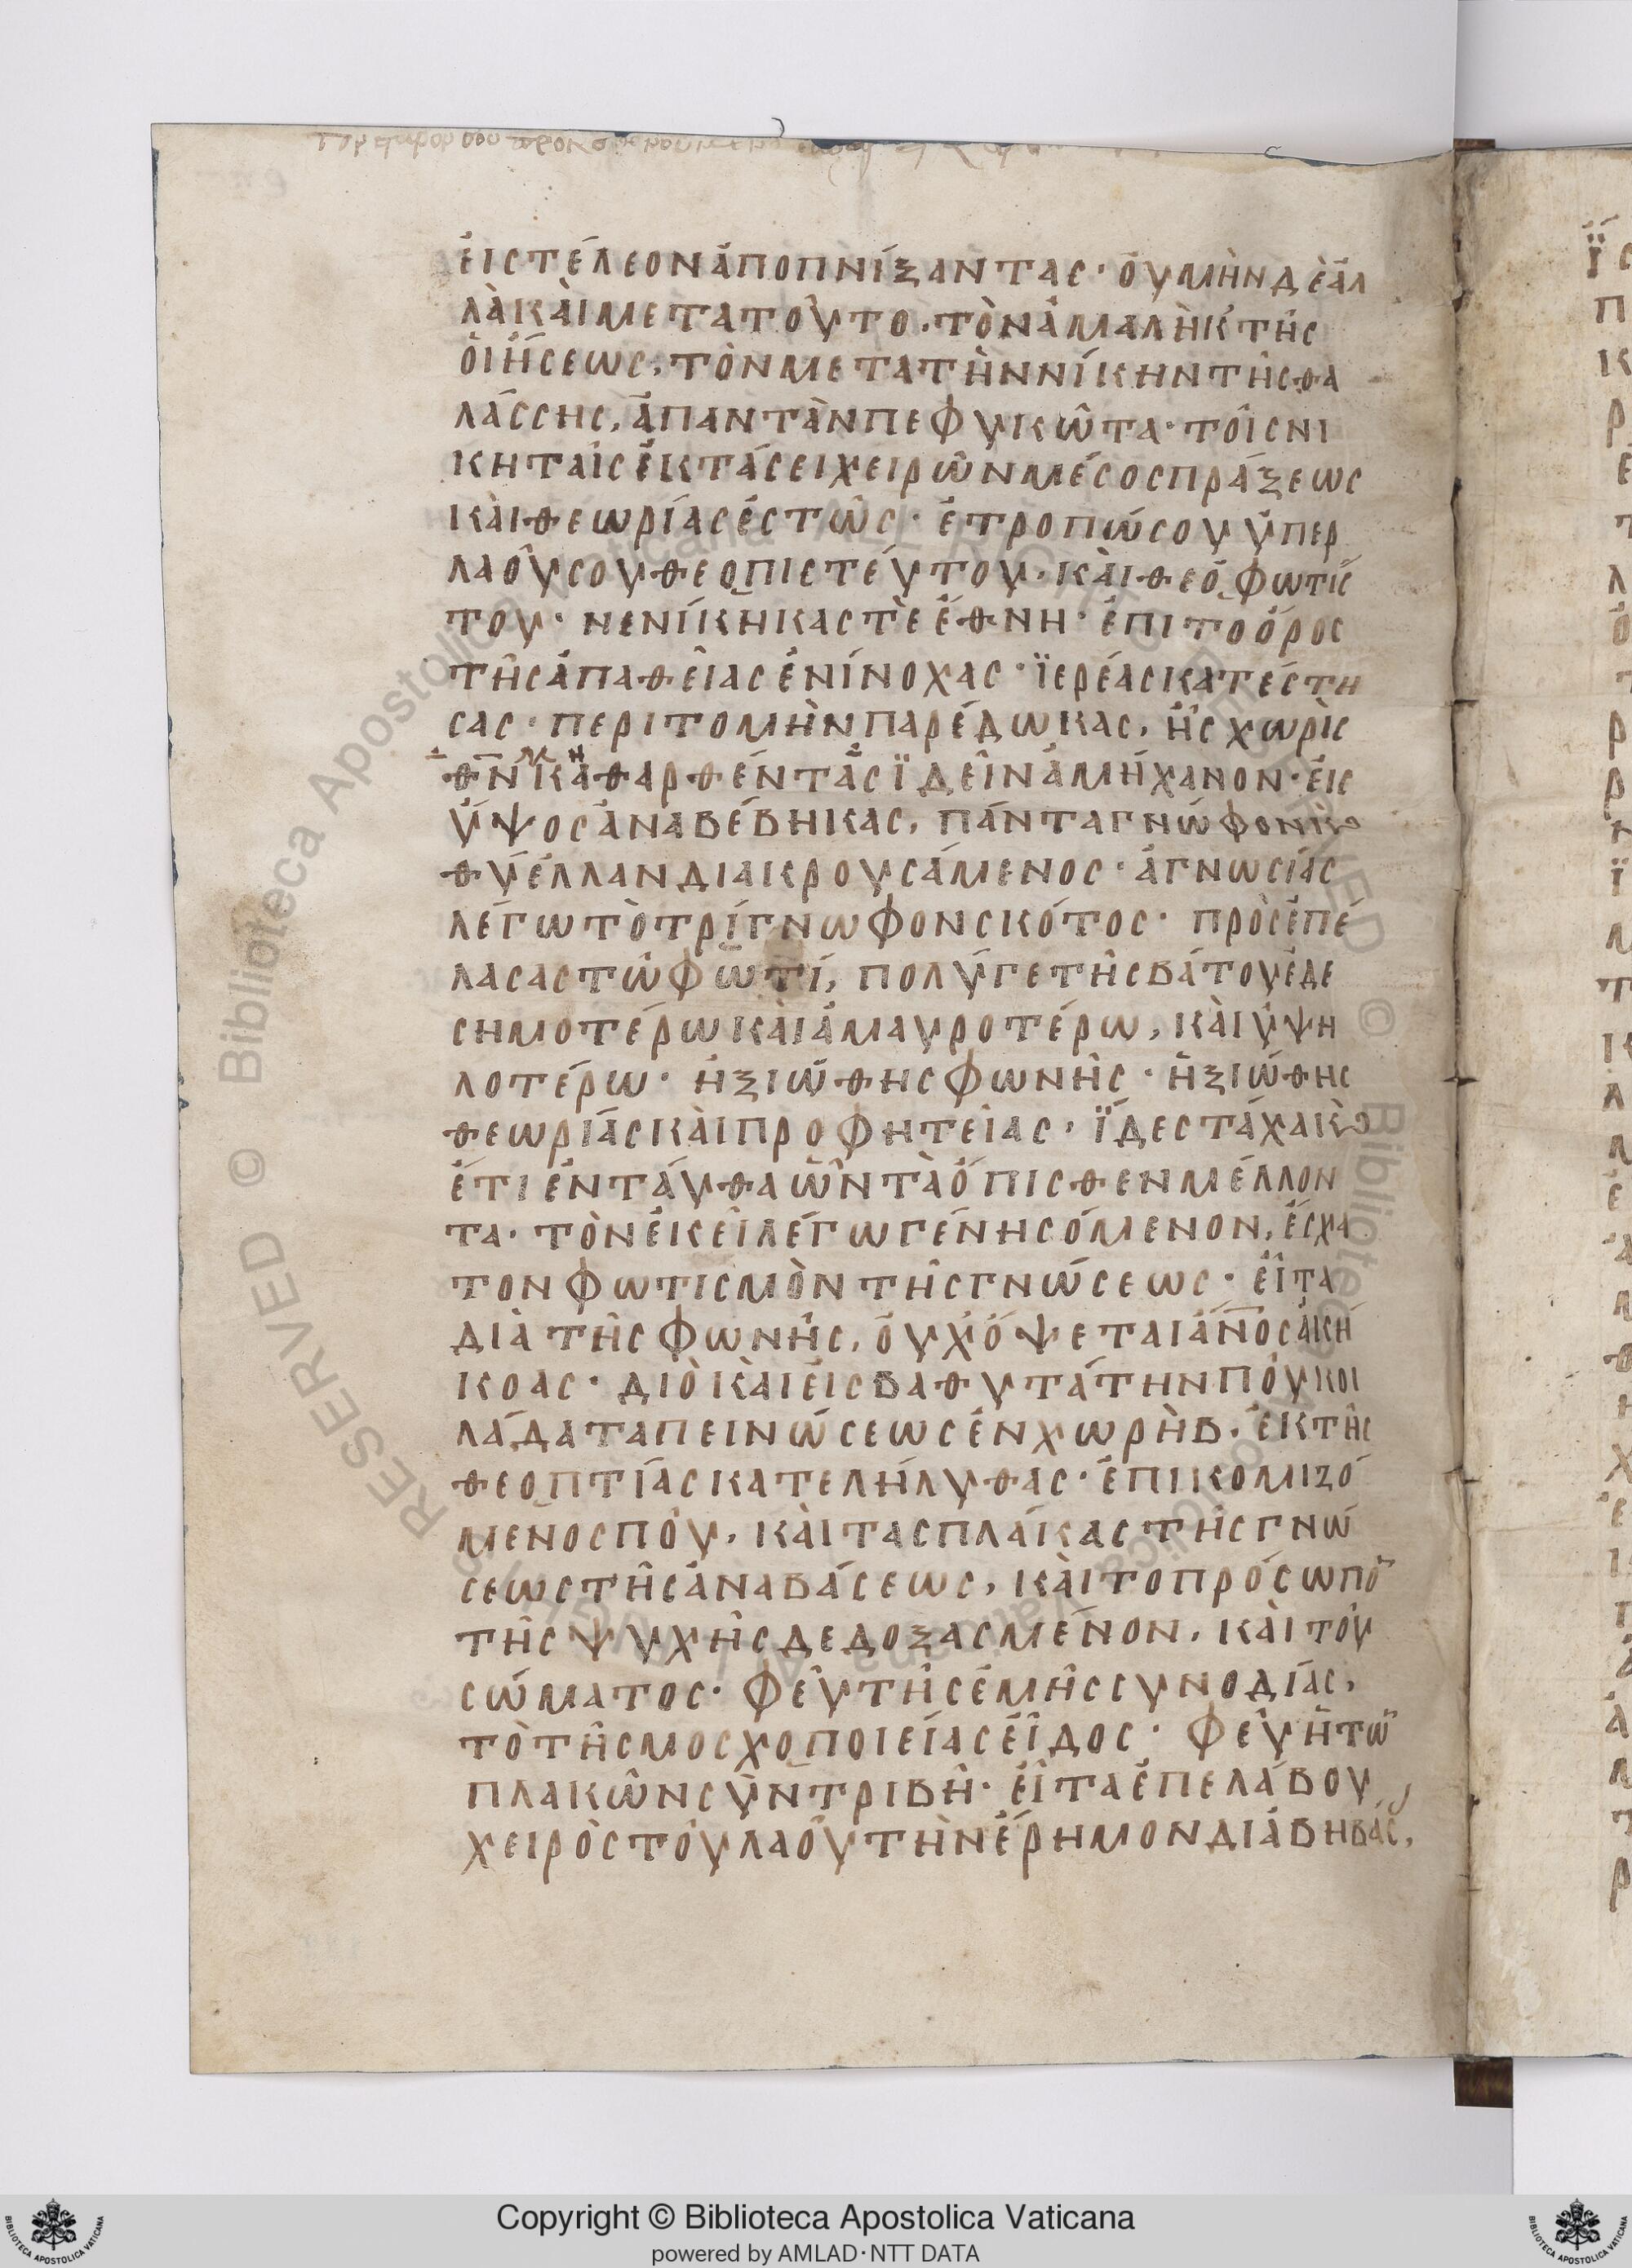 ἐις τέλεον ἀποπνίξαντας· ὀυ μὴν δὲ ἀλ
λὰ κὰι μετα τοῦτο. τὸν ἀμαλὴκ τῆς
ὀιήσεως, τὸν μετα τὴν νίκην τῆς θα
λάσσης, ἀπαντὰν πεφυκῶτα· τοῖς νι
κηταῖς ἐκτάσει χειρῶν μέσος πράξεως
κὰι θεωρίας ἑστῶς· ἐτροπώσου ὑπερ
λαοῦ σου θεοπιστέυτου, κὰι θεοφωτίσ
του· νενίκηκας τὲ ἔθνη· ἐπι το ὄρος
τῆς ἀπαθείας ἐνίνοχας· ϊερέας κατέστη
σας· περιτομὴν παρέδωκας, ἧς χωρὶς
θν̅ μὴ καθαρθέντας ϊδεῖν ἀμήχανον· ἐις
ὕψος ἀναβέβηκας, πάντα γνώφον κὰι
θυέλλαν διακρουσάμενος· ἀγνωσίας
λέγω τὸ τρίγνωφον σκότος· πρὸσεπέ
λασας τῶ φωτί, πολύ γε τῆς βάτου ἐδε
σημοτέρω κὰι ἀμαυροτέρω, κὰι ὑψη
λοτέρω· ἠξιώθης φωνῆς· ἠξιώθης
θεωρίας κὰι προφητείας· ϊδες τάχα κὰι
ἔτι ἐντάυθα ὢν τὰ ὄπισθεν μέλλον
τα· τὸν ἐκεῖ λέγω γενησόμενον, ἔσχα
τον φωτισμὸν τῆς γνώσεως· εἶτα
διὰ τῆς φωνῆς, ὀυχ ὄψεται ἀν̅ος ἀκή
κοας· διὸ κὰι ἐις βαθυτάτην ποῦ κοι
λάδα ταπεινώσεως ἐν χωρὴβ. ἐκ τῆς
θεοπτίας κατελήλυθας· ἐπικομιζό
μενος ποῦ, κὰι τας πλάκας τῆς γνώ
σεως τῆς ἀναβάσεως, κὰι το πρόσωπο̅
τῆς ψυχῆς δεδοξασμένον, κὰι τοῦ
σώματος· φεῦ τῆς ἐμῆς συνοδίας,
τὸ τῆς μοσχοποιείας εἶδος· φεῦ ἡ τῶ̅
πλακῶν συντριβὴ· εἶτα ἐπελάβου
χειρὸς τοῦ λαοῦ τὴν ἔρημον διάβηβάς,
Copyright © Biblioteca Apostolica Vaticana
powered by AMLAD·NTT DATA